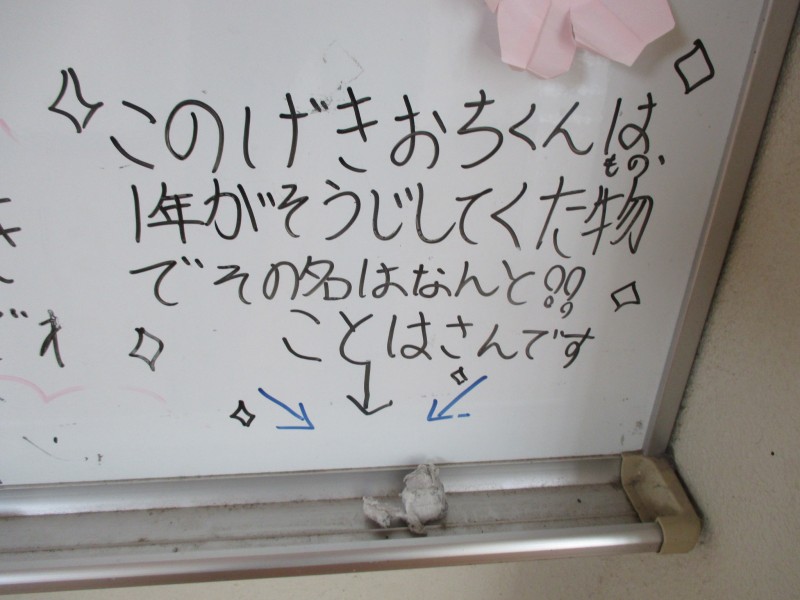 このげきおちくんは、
1年がそうじしてくた物
もの
でその名はなんと??
ことはさんです